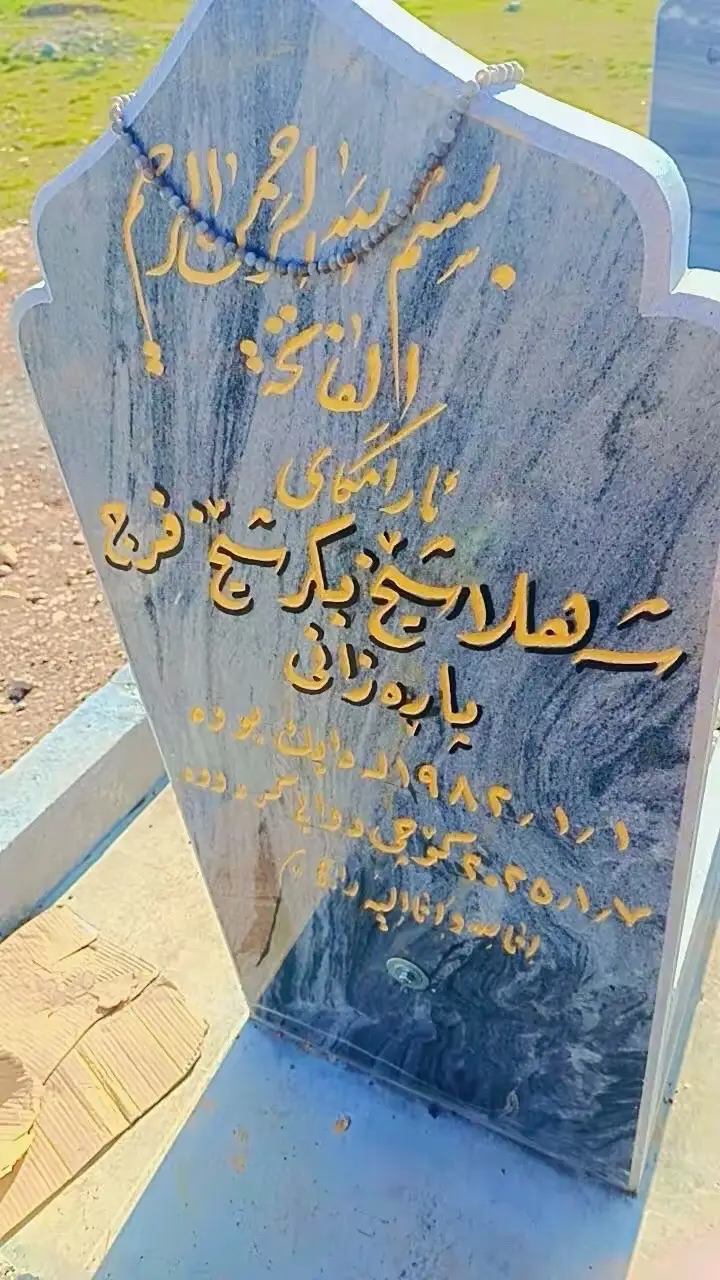 بسم الله الرحمن الرحيم
الفاتحة
ئارامگای
شەهلا شێخ بکر شێخ فرج
پارەزانی
١/١/١٩٨٢ لە دایك بووە
٢٠٢٥/١/٧ کۆچی دوایی کردووە
انا لله وانا اليه راجعون